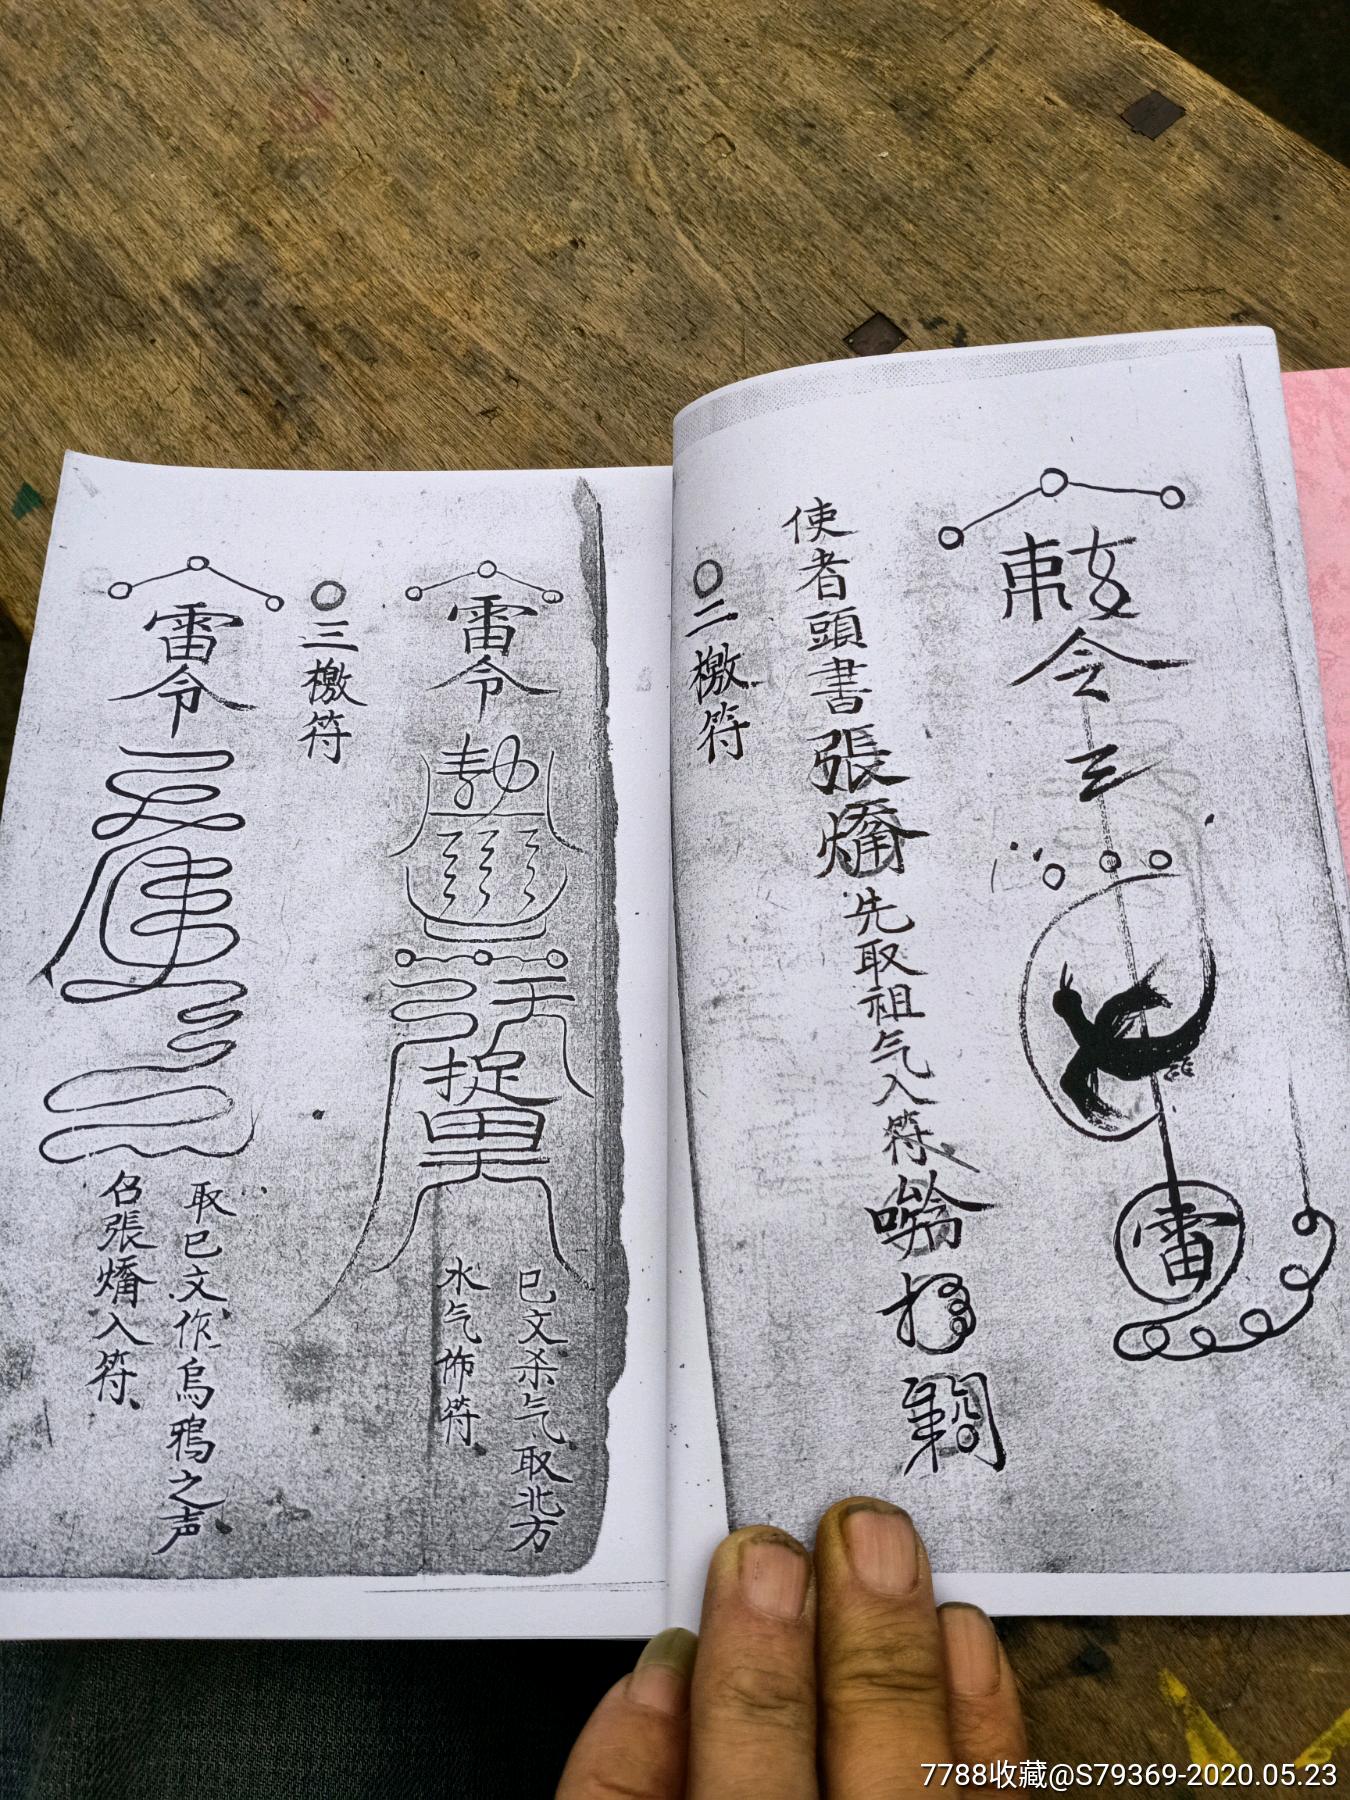 敕令
雷
使者頭書張燏先取祖气入符
○二檄符
雷令
捉
巳文杀气取北方
水气怖符
○三檄符
雷令
取巳文作烏鴉之声
召張燏入符
7788收藏@S79369-2020.05.23